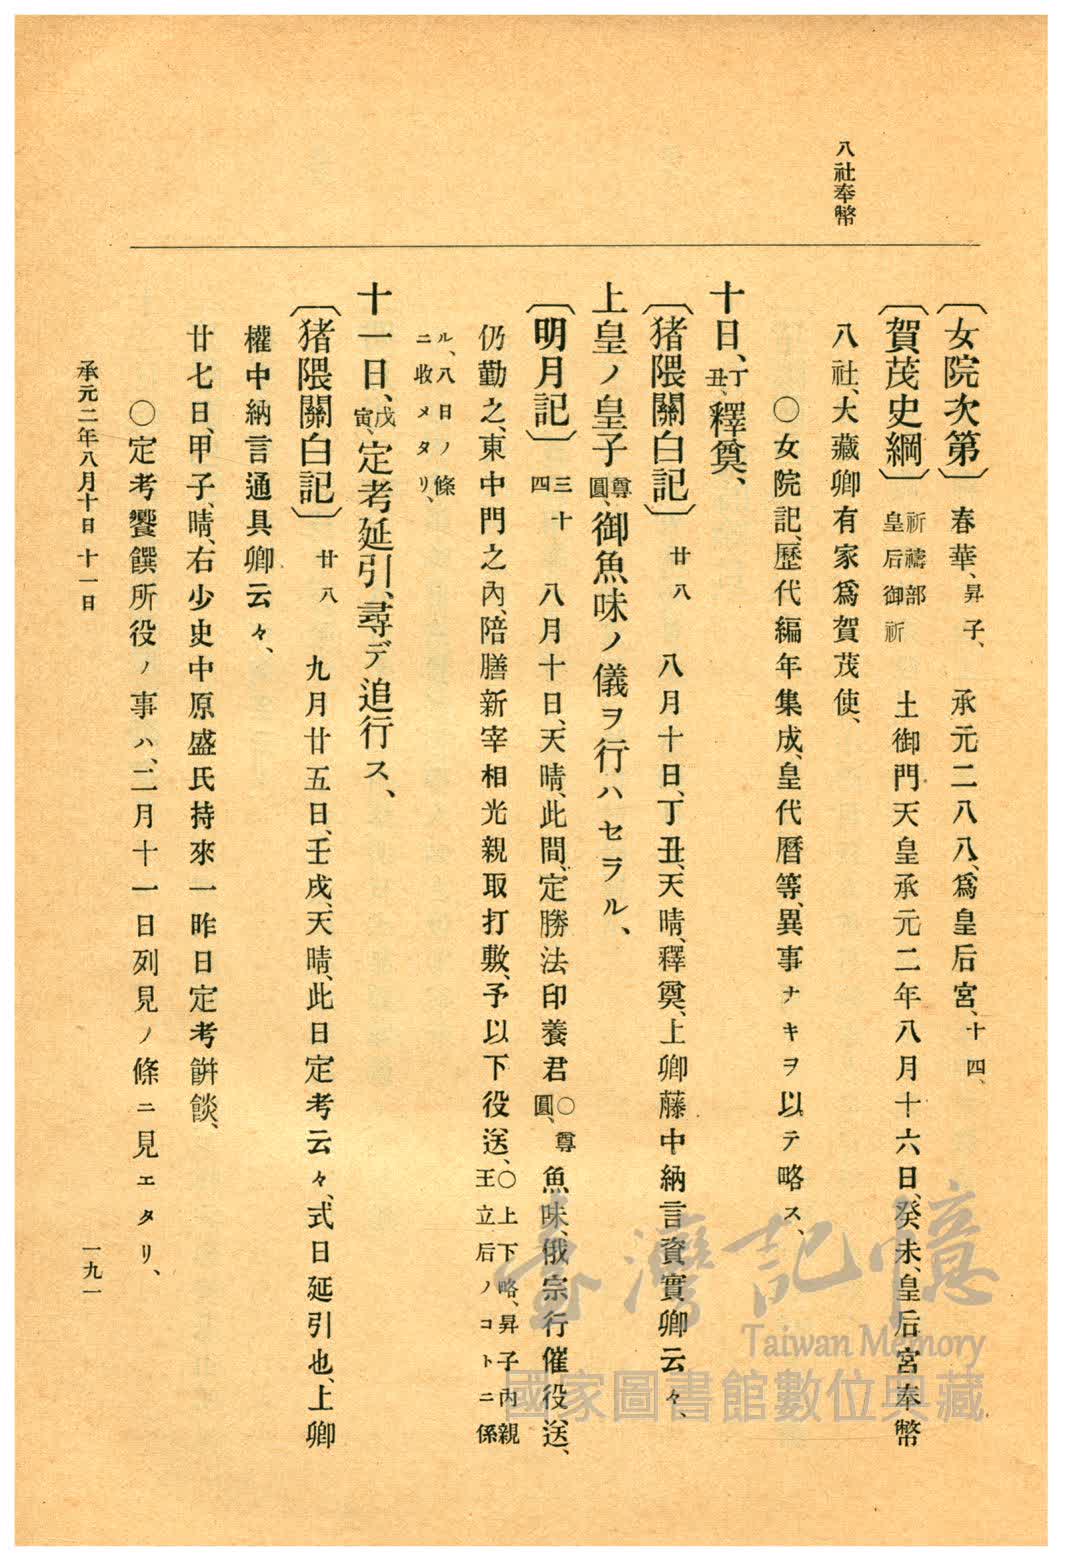 八社奉幣
〔女院次第〕 春華、昇子、 承元二八八、爲皇后宮、十四、
〔賀茂史綱〕 祈禱部皇后御祈 土御門天皇承元二年八月十六日、癸未、皇后宮奉幣
八社、大藏卿有家爲賀茂使、
〇女院記、歷代編年集成、皇代曆等、異事ナキヲ以テ略ス、
十日、丁丑、釋奠、
〔猪隈關白記〕 廿八 八月十日、丁丑、天晴、釋奠、上卿藤中納言資實卿云々、
上皇ノ皇子尊圓、御魚味ノ儀ヲ行ハセラル、
〔明月記〕 三十四 八月十日、天晴、此間、定勝法印養君〇尊圓、魚味、俄宗行催役送、
仍勤之、東中門之內、陪膳新宰相光親取打敷、予以下役送、〇上下略、昇子內親王立后ノコトニ係
ル、八日ノ條ニ收メタリ、
十一日、戊寅、定考延引、尋デ追行ス、
〔猪隈關白記〕 廿八 九月廿五日、壬戌、天晴、此日定考云々、式日延引也、上卿
權中納言通具卿云々、
廿七日、甲子、晴、右少史中原盛氏持來一昨日定考餠餤、
〇定考饗饌所役ノ事ハ、二月十一日列見ノ條ニ見エタリ、
承元二年八月十日 十一日
一九一
臺灣記憶
Taiwan Memory
國家圖書館數位典藏